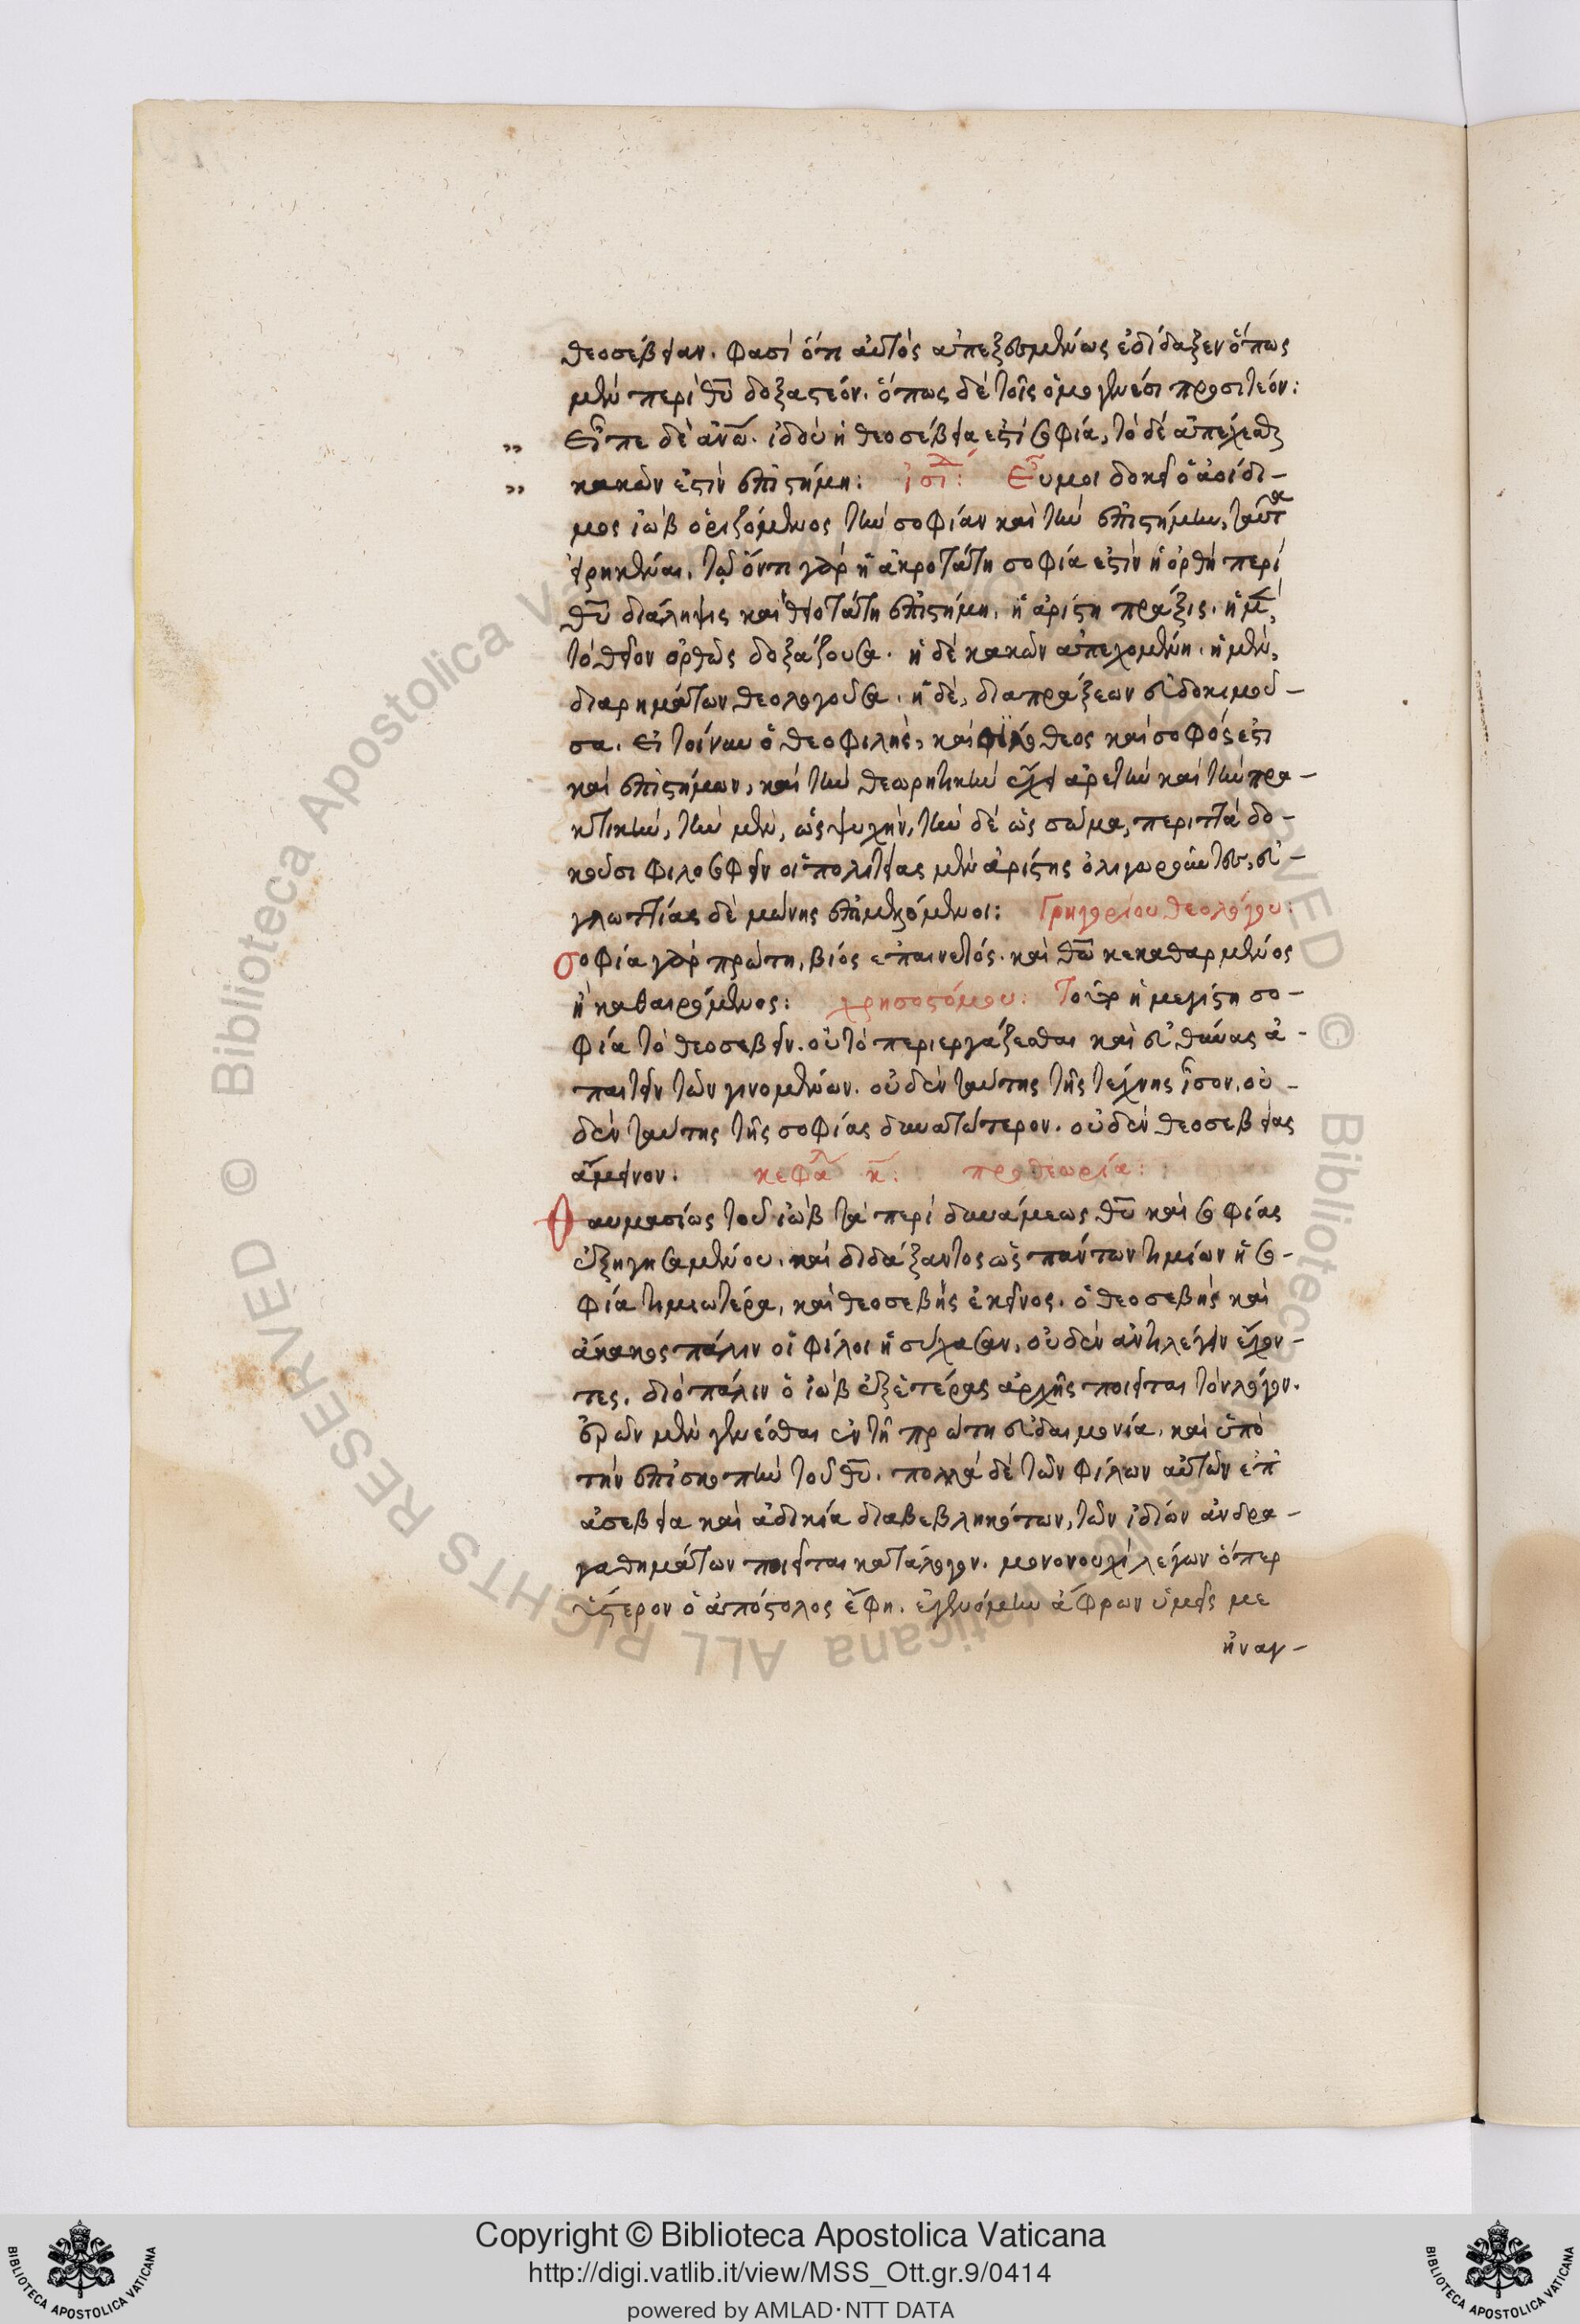 θεοσέβειαν. φασὶ ὅτι αὐτὸς ἀπεξεσμένως ἐδίδαξεν ὅπως
μὲν περὶ θῦ δοξαστέον. ὅπως δὲ τοῖς ὁμογενέσι προσιτέον:
" Εἶπε δὲ ἀνω. ἰδοὺ ἡ θεοσέβεια ἐστὶ σοφία, τὸ δὲ ἀπέχεσθαι
" κακῶν ἐστὶν ἐπιστήμη: ἰσι: Εὖ μοι δοκεῖ ὁ ἀοίδι-
μος ἰὼβ ὁριζόμενος τὴν σοφίαν καὶ τὴν ἐπιστήμην, ταῦτα
εἰρηκέναι. τῷ ὄντι γὰρ ἡ ἀκροτάτη σοφία ἐστὶν ἡ ὀρθὴ περὶ
θῦ διάληψις καὶ θειοτάτη ἐπιστήμη, ἡ ἀρίστη πράξις. ἡ μ,
τὸ θεῖον ὀρθῶς δοξάζουσα. ἡ δὲ κακῶν ἀπεχομένη. ἡ μὲν,
διαρημάτων θεολογοῦσα. ἡ δὲ, διαπράξεων εὐδοκιμοῦ-
σα. εἰ τοίνυν ὁ θεοφιλὴς, καὶ φιλόθεος καὶ σοφός ἐστι
καὶ ἐπιστήμων, καὶ τὴν θεωρητικὴν ἔχει ἀρετὴν καὶ τὴν πρα-
κτικὴν, τὴν μὲν, ὡς ψυχὴν, τὴν δὲ ὡς σῶμα, περιττὰ δο-
κοῦσι φιλοσοφεῖν οἱ πολιτείας μὲν ἀρίστης ὀλιγωροῦντες, εὐ-
γλωττίας δὲ μόνης ἐπιμελόμενοι: Γρηγορίου θεολόγου:
σοφία γὰρ πρώτη, βιός ἐπαινετός. καὶ θῶ κεκαθαρμένος
ἢ καθαιρόμενος: χρησοστόμου: Τοῦτο ἡ μεγίστη σο-
φία τὸ θεοσεβεῖν. οὐ τὸ περιεργάζεσθαι καὶ εὐθύνας ἀ-
παιτεῖν τῶν γινομένων. οὐδὲν ταύτης τῆς τέχνης ἶσον, οὐ-
δὲν ταύτης τῆς σοφίας δυνατώτερον. οὐδὲν θεοσεβείας
ἄμεινον: κεφα κ: προθεωρία:
Θαυμασίως τοῦ ἰὼβ τὰ περὶ δυνάμεως θῦ καὶ σοφίας
ἐξηγησαμένου. καὶ διδάξαντος ὡς πάντων τιμίων ἡ σο-
φία τιμιωτέρα, καὶ θεοσεβὴς ἐκεῖνος. ὁ θεοσεβὴς καὶ
ἄκακος πάλιν οἱ φίλοι ἡσύχασαν, οὐδὲν ἀντιλέγειν ἔχον-
τες. διὸ πάλιν ὁ ἰὼβ ἐξ ἑτέρας ἀρχῆς ποιεῖται τὸν λόγον.
ἐρῶν μὲν γενέσθαι ἐν τῇ πρώτη εὐδαιμονία, καὶ ὑπὸ
τὴν ἐπισκοπὴν τοῦ θῦ. πολλὰ δὲ τῶν φίλων αὐτῶν ἐπ
ἀσεβεία καὶ ἀδικία διαβεβληκότων, τῶν ἰδίων ἀνδρα-
γαθημάτων ποιεῖται κατάλογον. μονονουχὶ λέγων ὅπερ
ὕστερον ὁ ἀπόστολος ἔφη. ἐγενόμην ἄφρων ὑμεῖς με
ἠναγ-
Copyright © Biblioteca Apostolica Vaticana
http://digi.vatlib.it/view/MSS_Ott.gr.9/0414
powered by AMLAD·NTT DATA
© Biblioteca Apostolica Vaticana ALL RIGHTS RESERVED
BIBLIOTECA APOSTOLICA VATICANA
BIBLIOTECA APOSTOLICA VATICANA